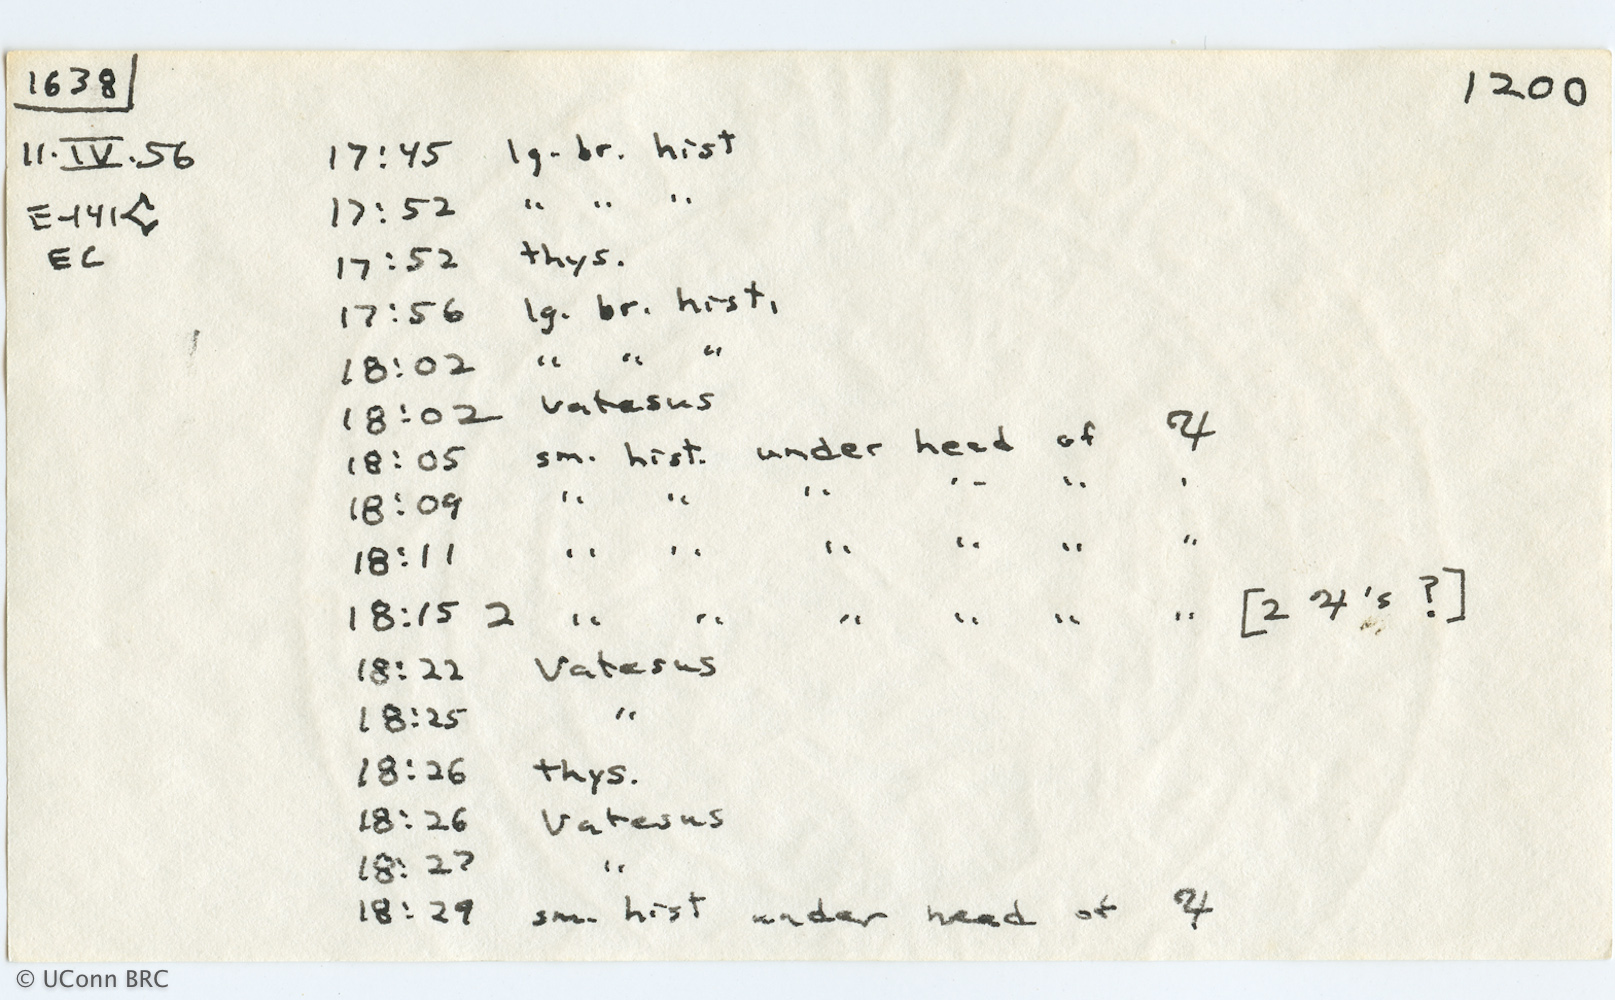 1638
1200
11.IV.56 17:45 lg. br. hist
E-141 17:52 " " "
EC 17:52 thys.
17:56 lg. br. hist.
18:02 " " "
18:02 Vatesus
18:05 sm. hist. under head of ♃
18:09 " " " " " "
18:11 " " " " " "
18:15 2 " " " " " " [2 ♃'s ?]
18:22 Vatesus
18:25 "
18:26 thys.
18:26 Vatesus
18:27 "
18:29 sm. hist under head of ♃
© UConn BRC